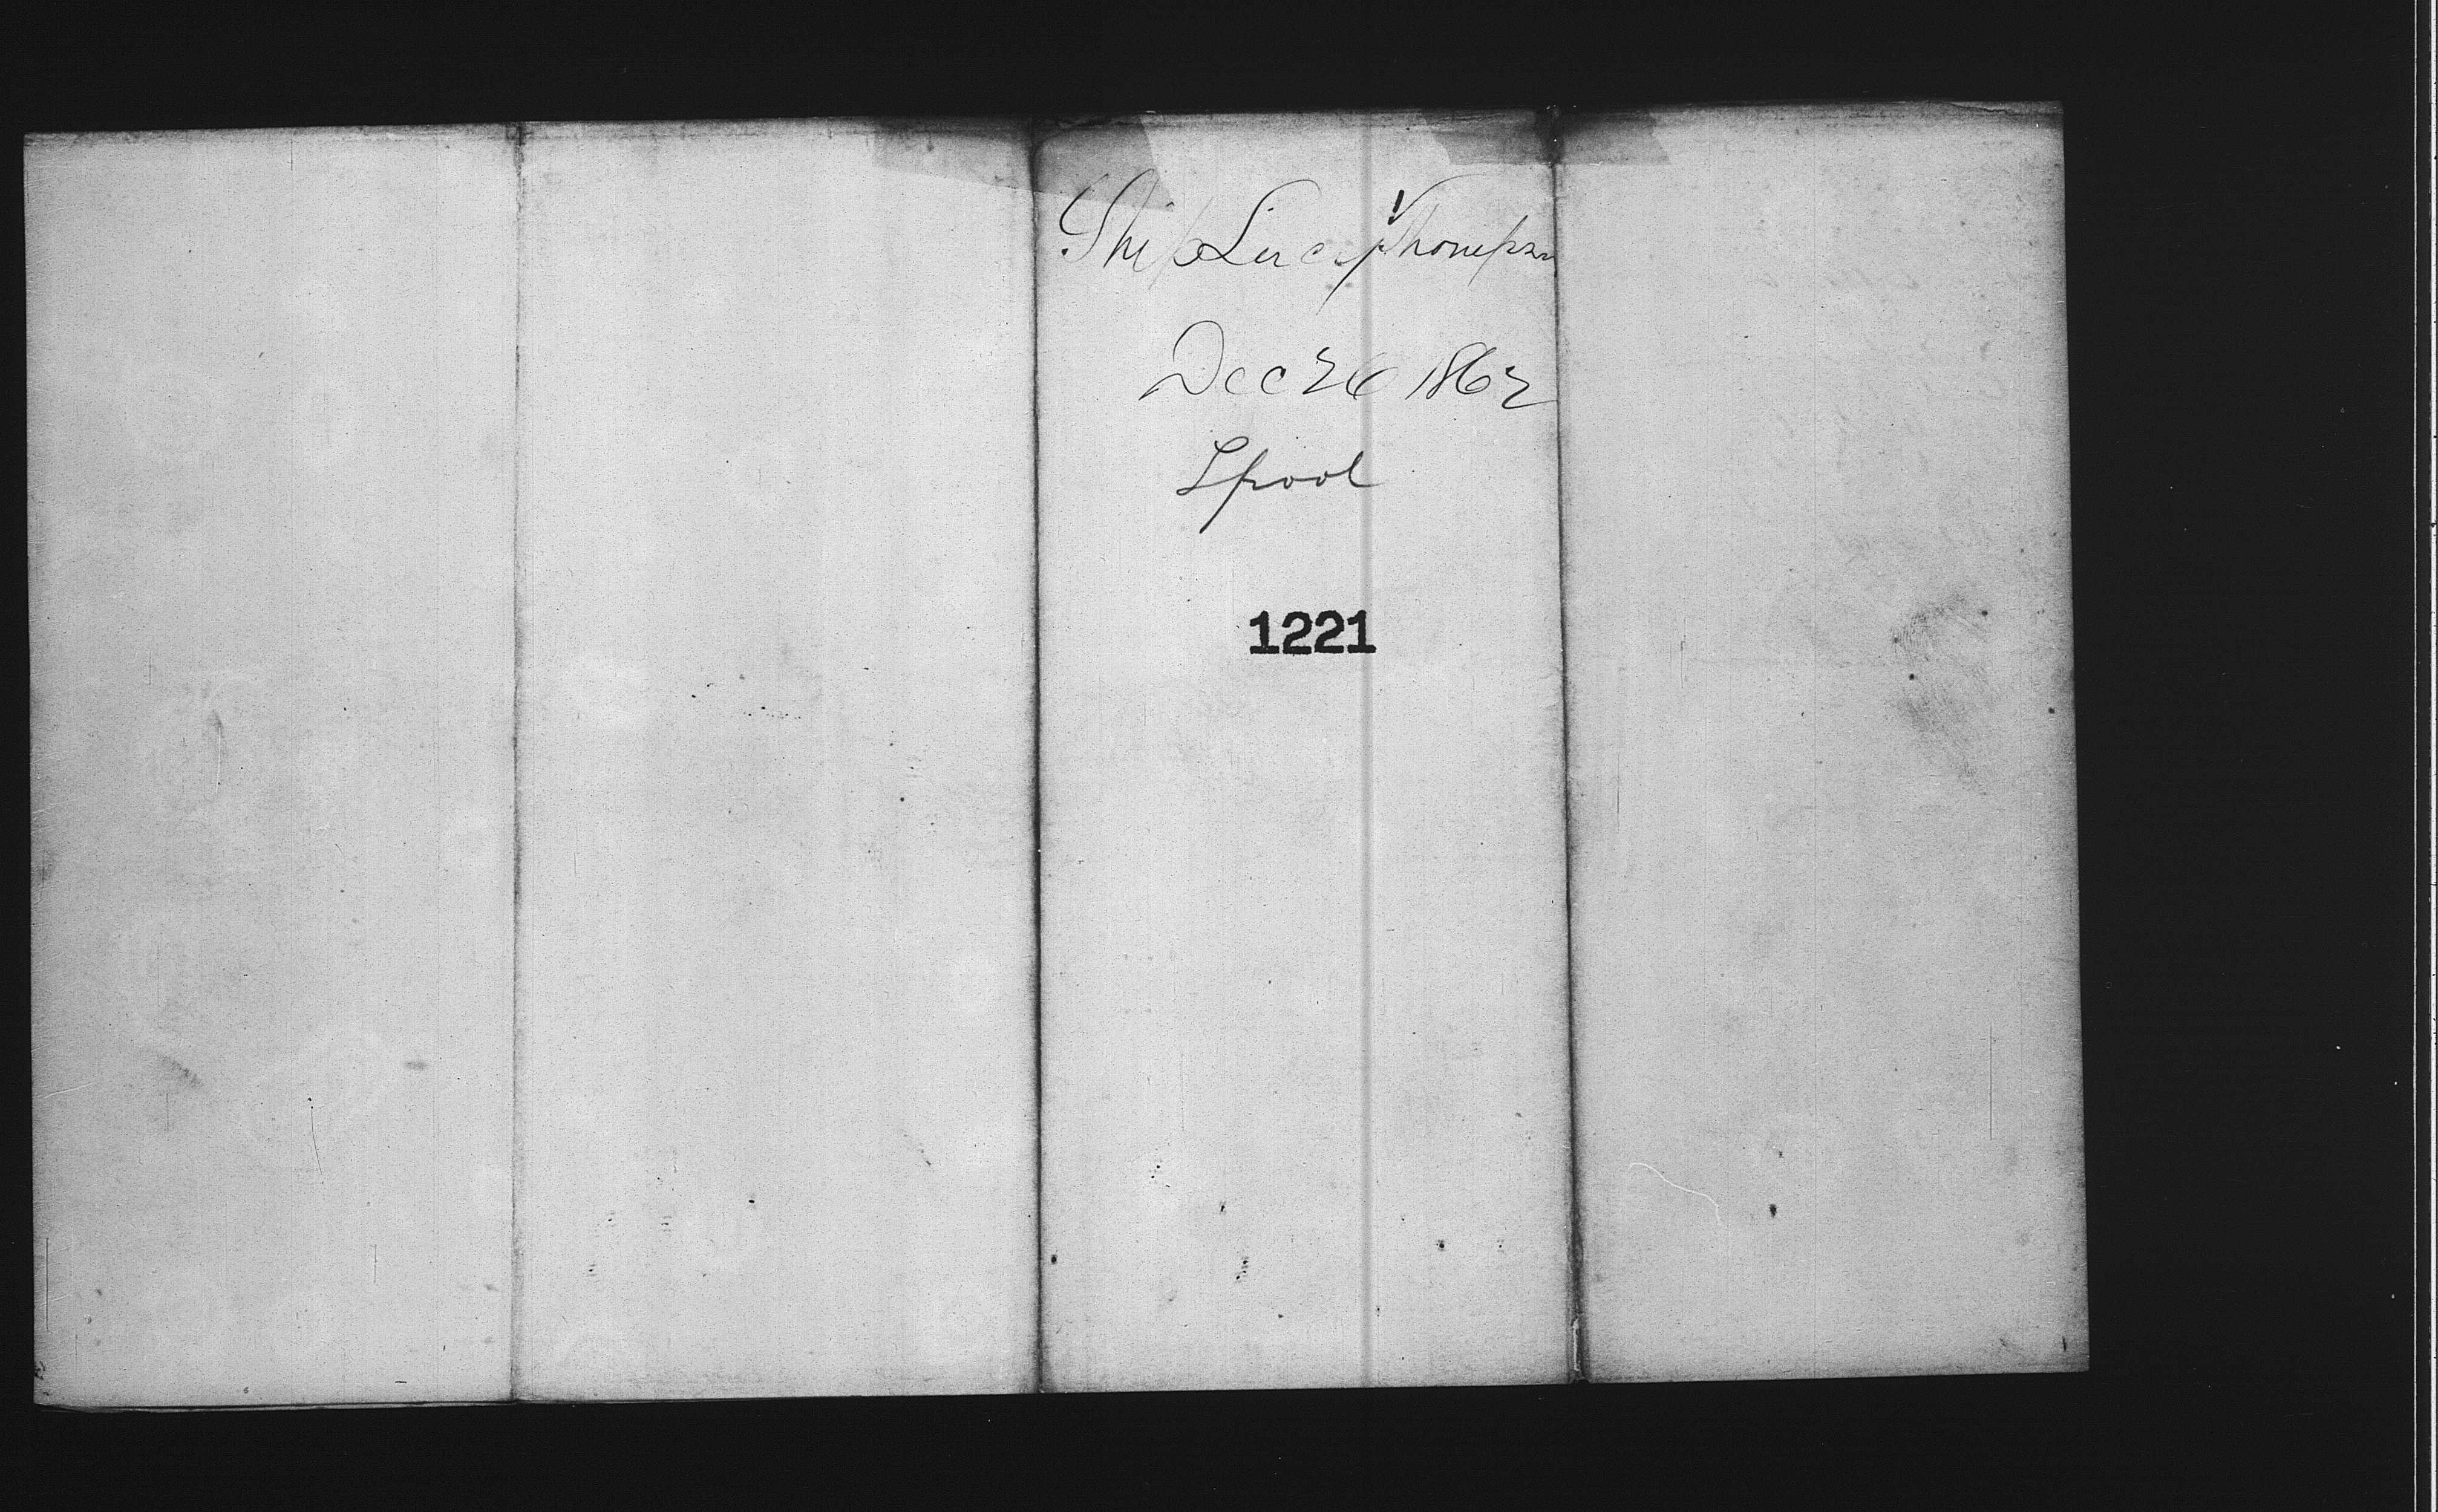 Ship Lucy Thompson
Dec 26 1862
Lpool
1221